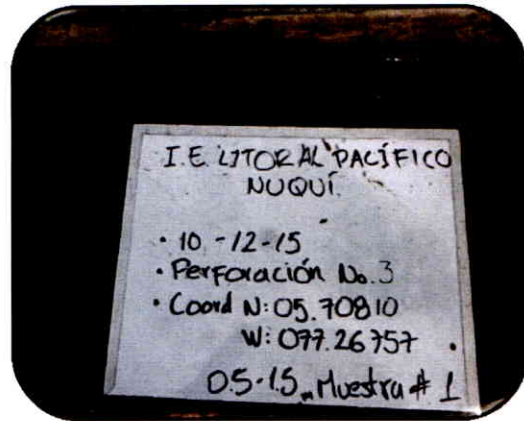 I.E. LITORAL PACÍFICO
NUQUÍ.
• 10-12-15
• Perforación No. 3
• Coord N: 05.70810
W: 077.26757
0.5-1.5 m Muestra # 1